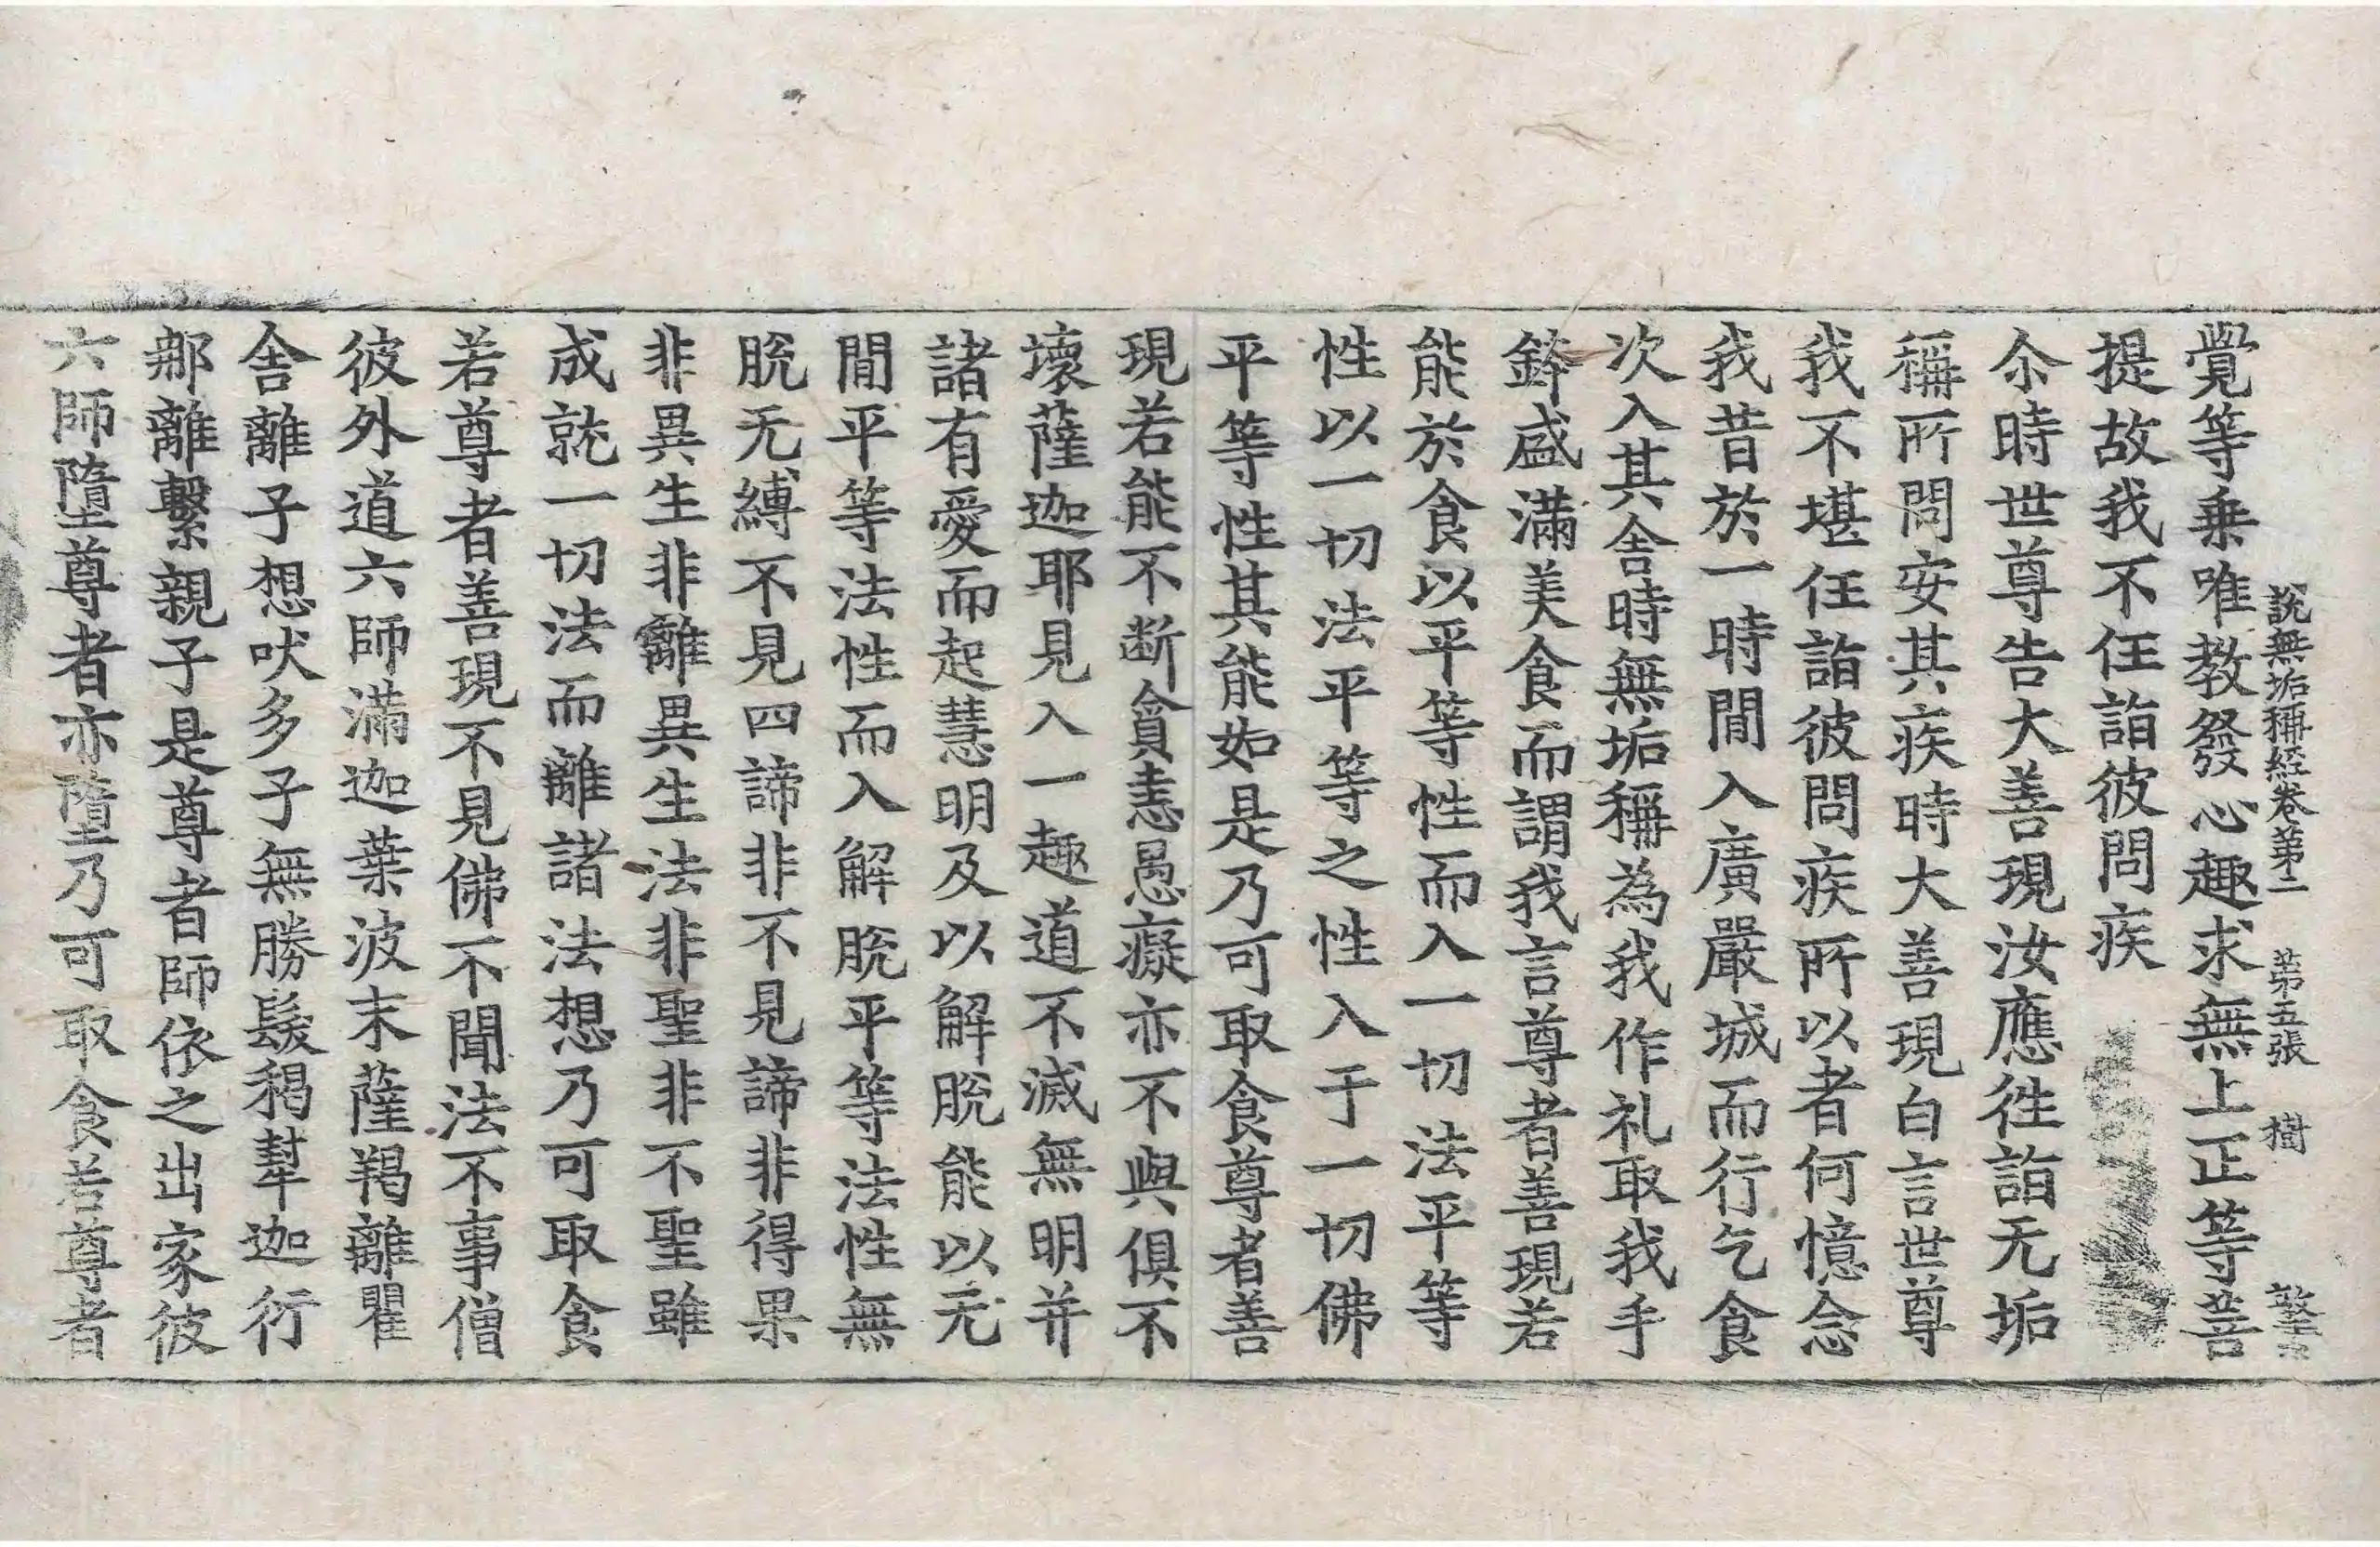 說無垢稱經卷第二 第五張 樹
覺等乗唯教發心趣求無上正等菩
提故我不任詣彼問疾
尒時世尊告大善現汝應徃詣无垢
稱所問安其疾時大善現白言世尊
我不堪任詣彼問疾所以者何憶念
我昔於一時閒入廣嚴城而行乞食
次入其舍時無垢稱為我作礼取我手
鉢盛滿美食而謂我言尊者善現若
能於食以平等性而入一切法平等
性以一切法平等之性入于一切佛
平等性其能如是乃可取食尊者善
現若能不断貪恚愚癡亦不與俱不
壞薩迦耶見入一趣道不滅無明并
諸有愛而起慧明及以解脫能以无
閒平等法性而入解脫平等法性無
脫无縛不見四諦非不見諦非得果
非異生非離異生法非聖非不聖雖
成就一切法而離諸法想乃可取食
若尊者善現不見佛不聞法不事僧
彼外道六師滿迦葉波末薩羯離瞿
舍離子想吠多子無勝髮褐犎迦行
那離繫親子是尊者師依之出家彼
六師墮尊者亦墮乃可取食若尊者